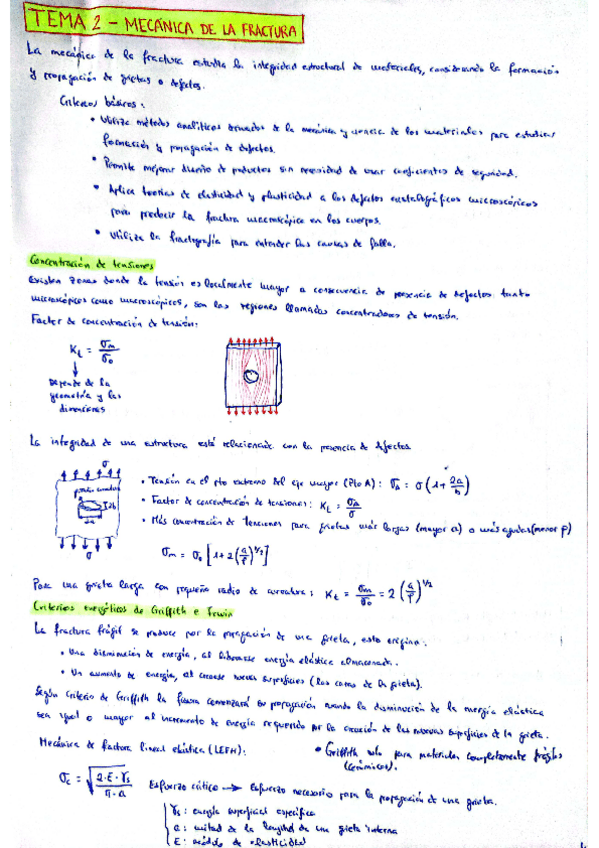 TEMA 2 - MECÁNICA DE LA FRACTURA
La mecánica de la fractura estudia la integridad estructural de materiales, considerando la formación
y propagación de grietas o defectos.
Criterios básicos:
• Utiliza métodos analíticos derivados de la mecánica y ciencia de los materiales para estudiar
formación y propagación de defectos.
• Permite mejorar diseño de productos sin necesidad de usar coeficientes de seguridad.
• Aplica teorías de elasticidad y plasticidad a los defectos cristalográficos microscópicos
para predecir la fractura macroscópica en los cuerpos.
• Utiliza la fractografía para entender las causas de falla.
Concentración de tensiones
Existen zonas donde la tensión es localmente mayor a consecuencia de presencia de defectos tanto
microscópicos como macroscópicos, son las regiones llamadas concentradores de tensión.
Factor de concentración de tensión:
Kt = σm/σo
Depende de la
geometría y las
dimensiones
La integridad de una estructura está relacionada con la presencia de defectos
σ
2b
2a
σ
• Tensión en el pto extremo del eje mayor (Pto A): σA = σ (1 + 2a/b)
• Factor de concentración de tensiones: Kt = σA/σ
• Más concentración de tensiones para grietas más largas (mayor a) o más agudas (menor ρ)
σm = σo [1 + 2 (a/ρ)^1/2]
Para una grieta larga con pequeño radio de curvatura: Kt = σm/σo = 2 (a/ρ)^1/2
Criterios energéticos de Griffith e Irwin
La fractura frágil se produce por la propagación de una grieta, esto origina:
• Una disminución de energía, al liberarse energía elástica almacenada.
• Un aumento de energía, al crearse nuevas superficies (las caras de la grieta).
Según criterio de Griffith la fisura comenzará su propagación cuando la disminución de la energía elástica
sea igual o mayor al incremento de energía requerido por la creación de las nuevas superficies de la grieta.
Mecánica de fractura lineal elástica (LEFM):
• Griffith solo para materiales completamente frágiles
(cerámicos).
σc = √(2·E·γs / π·a)
Esfuerzo crítico → esfuerzo necesario para la propagación de una grieta.
γs: energía superficial específica
a: mitad de la longitud de una grieta interna
E: módulo de elasticidad